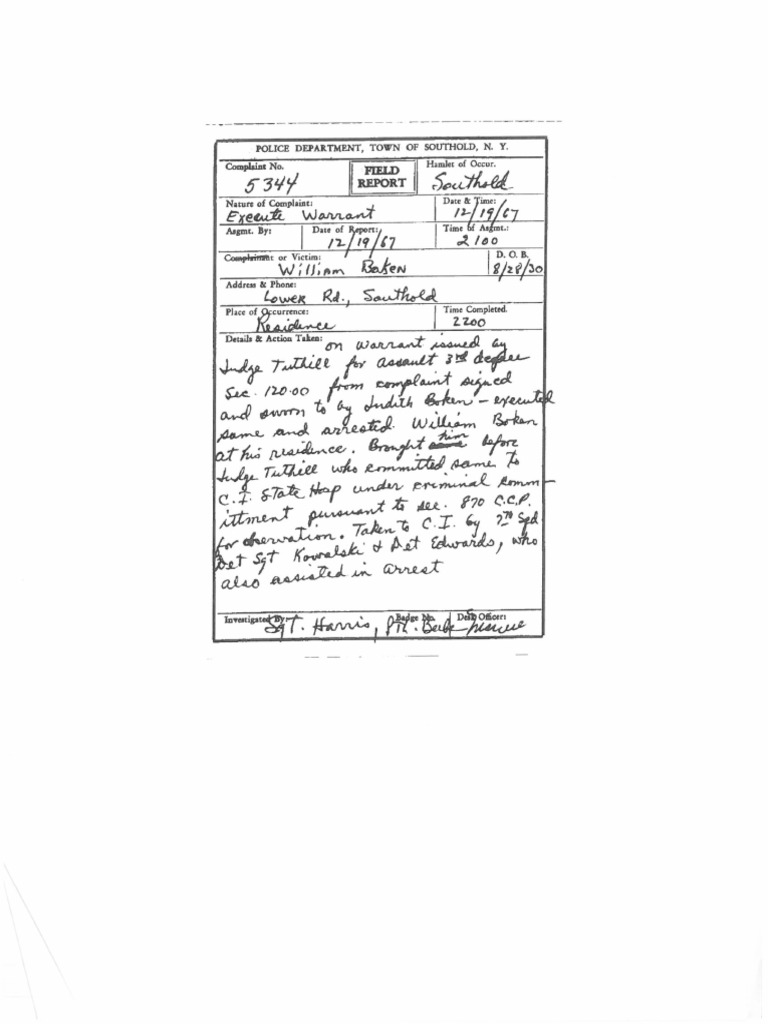 POLICE DEPARTMENT, TOWN OF SOUTHOLD, N. Y.
Complaint No. FIELD REPORT Hamlet of Occur.
5344 Southold
Nature of Complaint: Date & Time:
Execute Warrant 12/19/67
Asgmt. By: Date of Report: Time of Asgmt.:
12/19/67 2100
or Victim: D. O. B.
William Boken 8/28/30
Address & Phone:
Lower Rd., Southold
Place of Occurrence: Time Completed.
Residence 2200
Details & Action Taken: on warrant issued by
Judge Tuthill for assault 3rd degree
Sec. 120.00 from complaint signed
and sworn to by Judith Boken - executed
same and arrested William Boken
at his residence. Brought him before
Judge Tuthill who committed same to
C.I. State Hosp under criminal comm-
ittment pursuant to sec. 870 C.C.P.
for observation. Taken to C.I. by
Det Sgt Kowalski & Det Edwards, who
also assisted in arrest
Investigated By: Badge No. Desk Officer:
Sgt. Harris, Ptl.